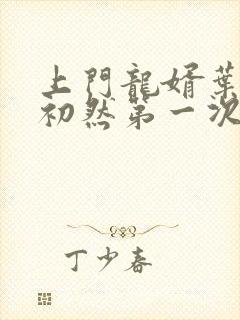 上門龍婿葉
初然第一次
丁少春